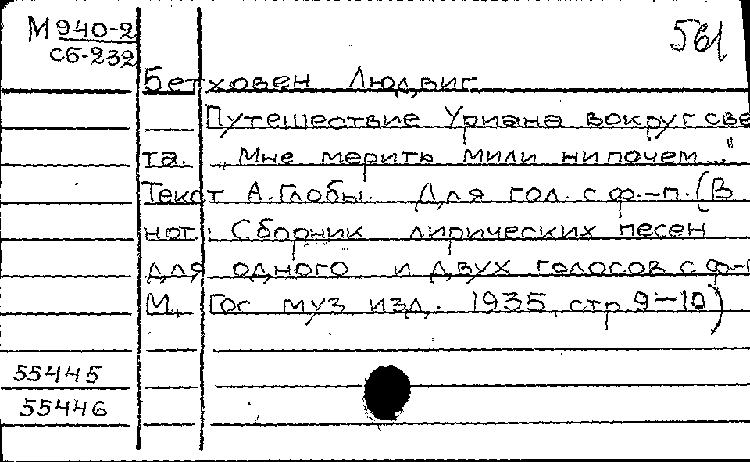 М 940-2
сб-232
561
Бетховен Людвиг.
Путешествие Уриана вокруг све
та. „Мне мерить мили нипочем..."
Текст А. Глобы. Для гол. с ф.-п. (В
нот.: Сборник лирических песен
для одного и двух голосов с ф-п
М., Гос. муз. изд., 1935, стр. 9-10)
55445
55446